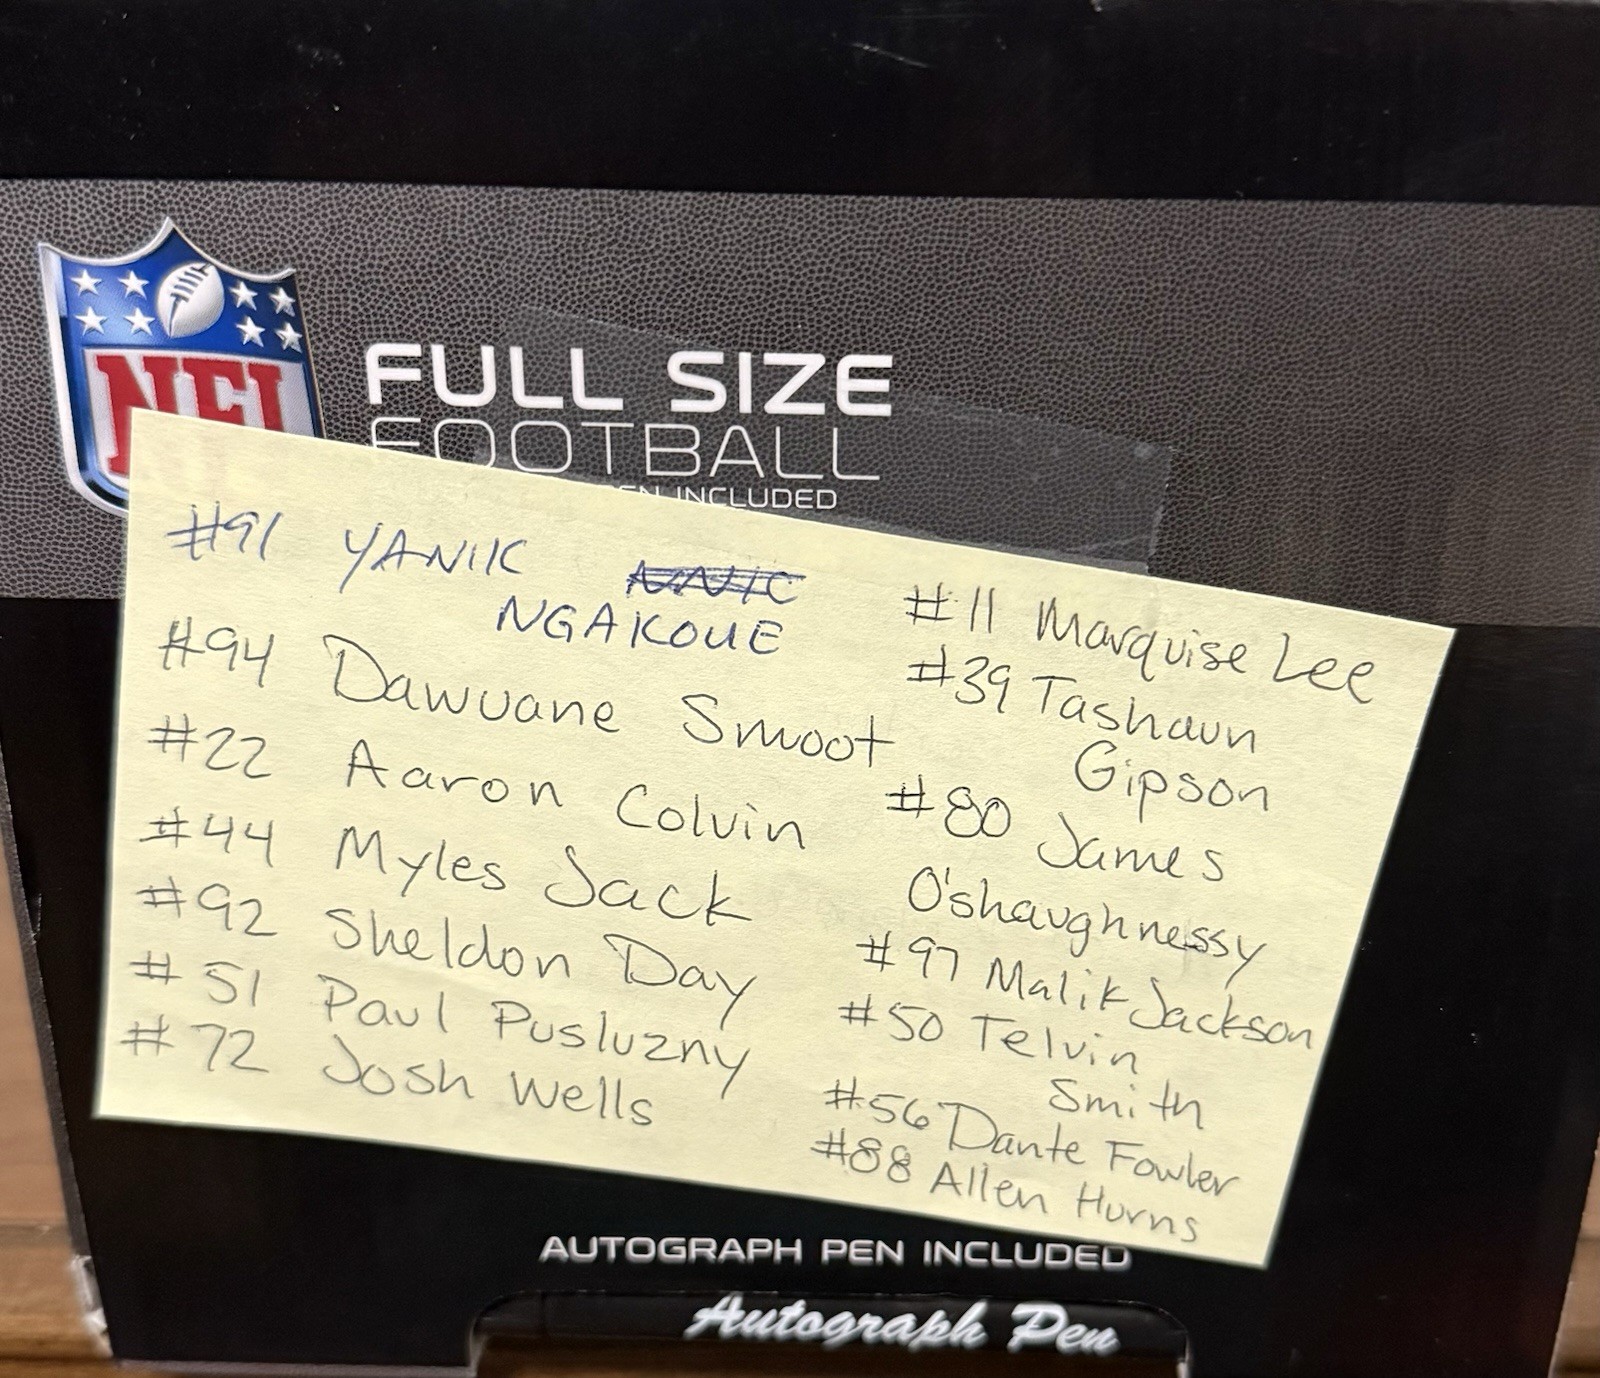 NFL
FULL SIZE
FOOTBALL
PEN INCLUDED
#91 YANIK
NGAKOUE
#94 Dawuane Smoot
#22 Aaron Colvin
#44 Myles Jack
#92 Sheldon Day
#51 Paul Pusluzny
#72 Josh Wells
#11 Marquise Lee
#39 Tashaun
Gipson
#80 James
O'shaughnessy
#97 Malik Jackson
#50 Telvin
Smith
#56 Dante Fowler
#88 Allen Hurns
AUTOGRAPH PEN INCLUDED
Autograph Pen